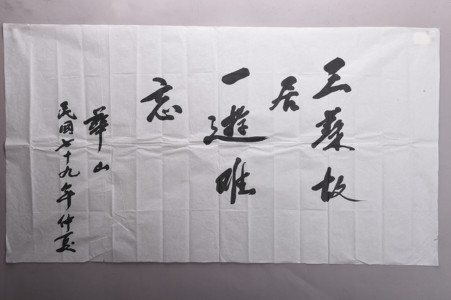 三蘇故
居
一遊難
忘
華山
民國七十九年仲夏